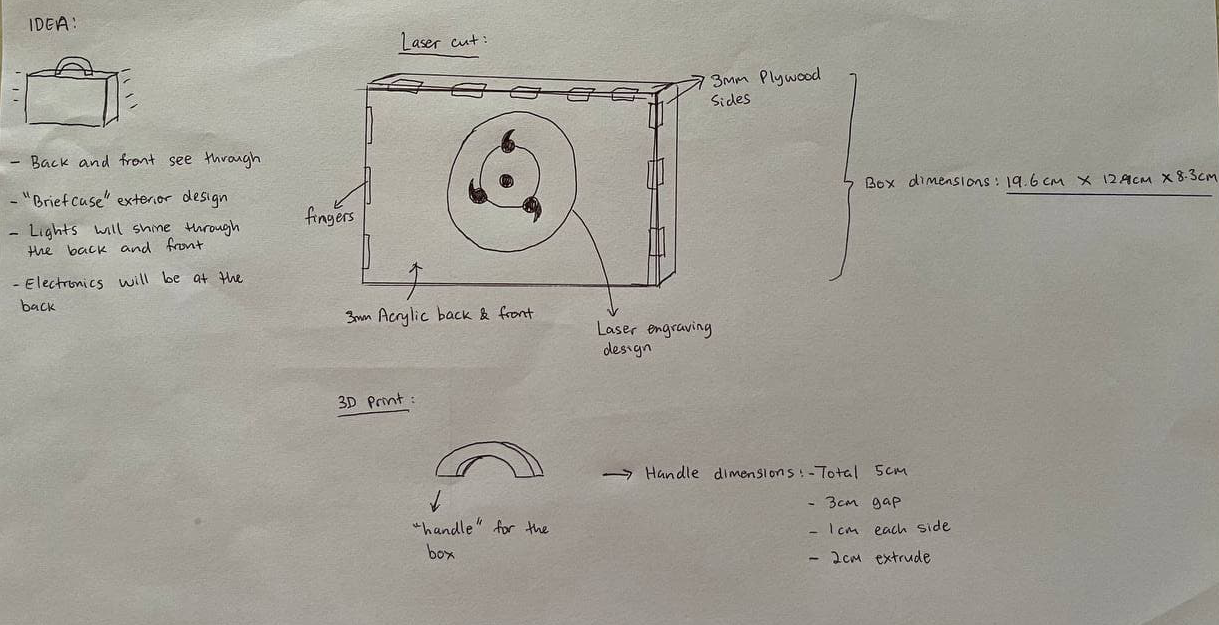 IDEA:
- Back and front see through
- "Briefcase" exterior design
- Lights will shine through
the back and front
- Electronics will be at the
back
Laser cut:
3mm Plywood
Sides
fingers
3mm Acrylic back & front
Laser engraving
design
Box dimensions: 19.6cm x cm x 8.3cm
3D Print:
"handle" for the
box
→ Handle dimensions: - Total 5cm
- 3cm gap
- 1cm each side
- 2cm extrude